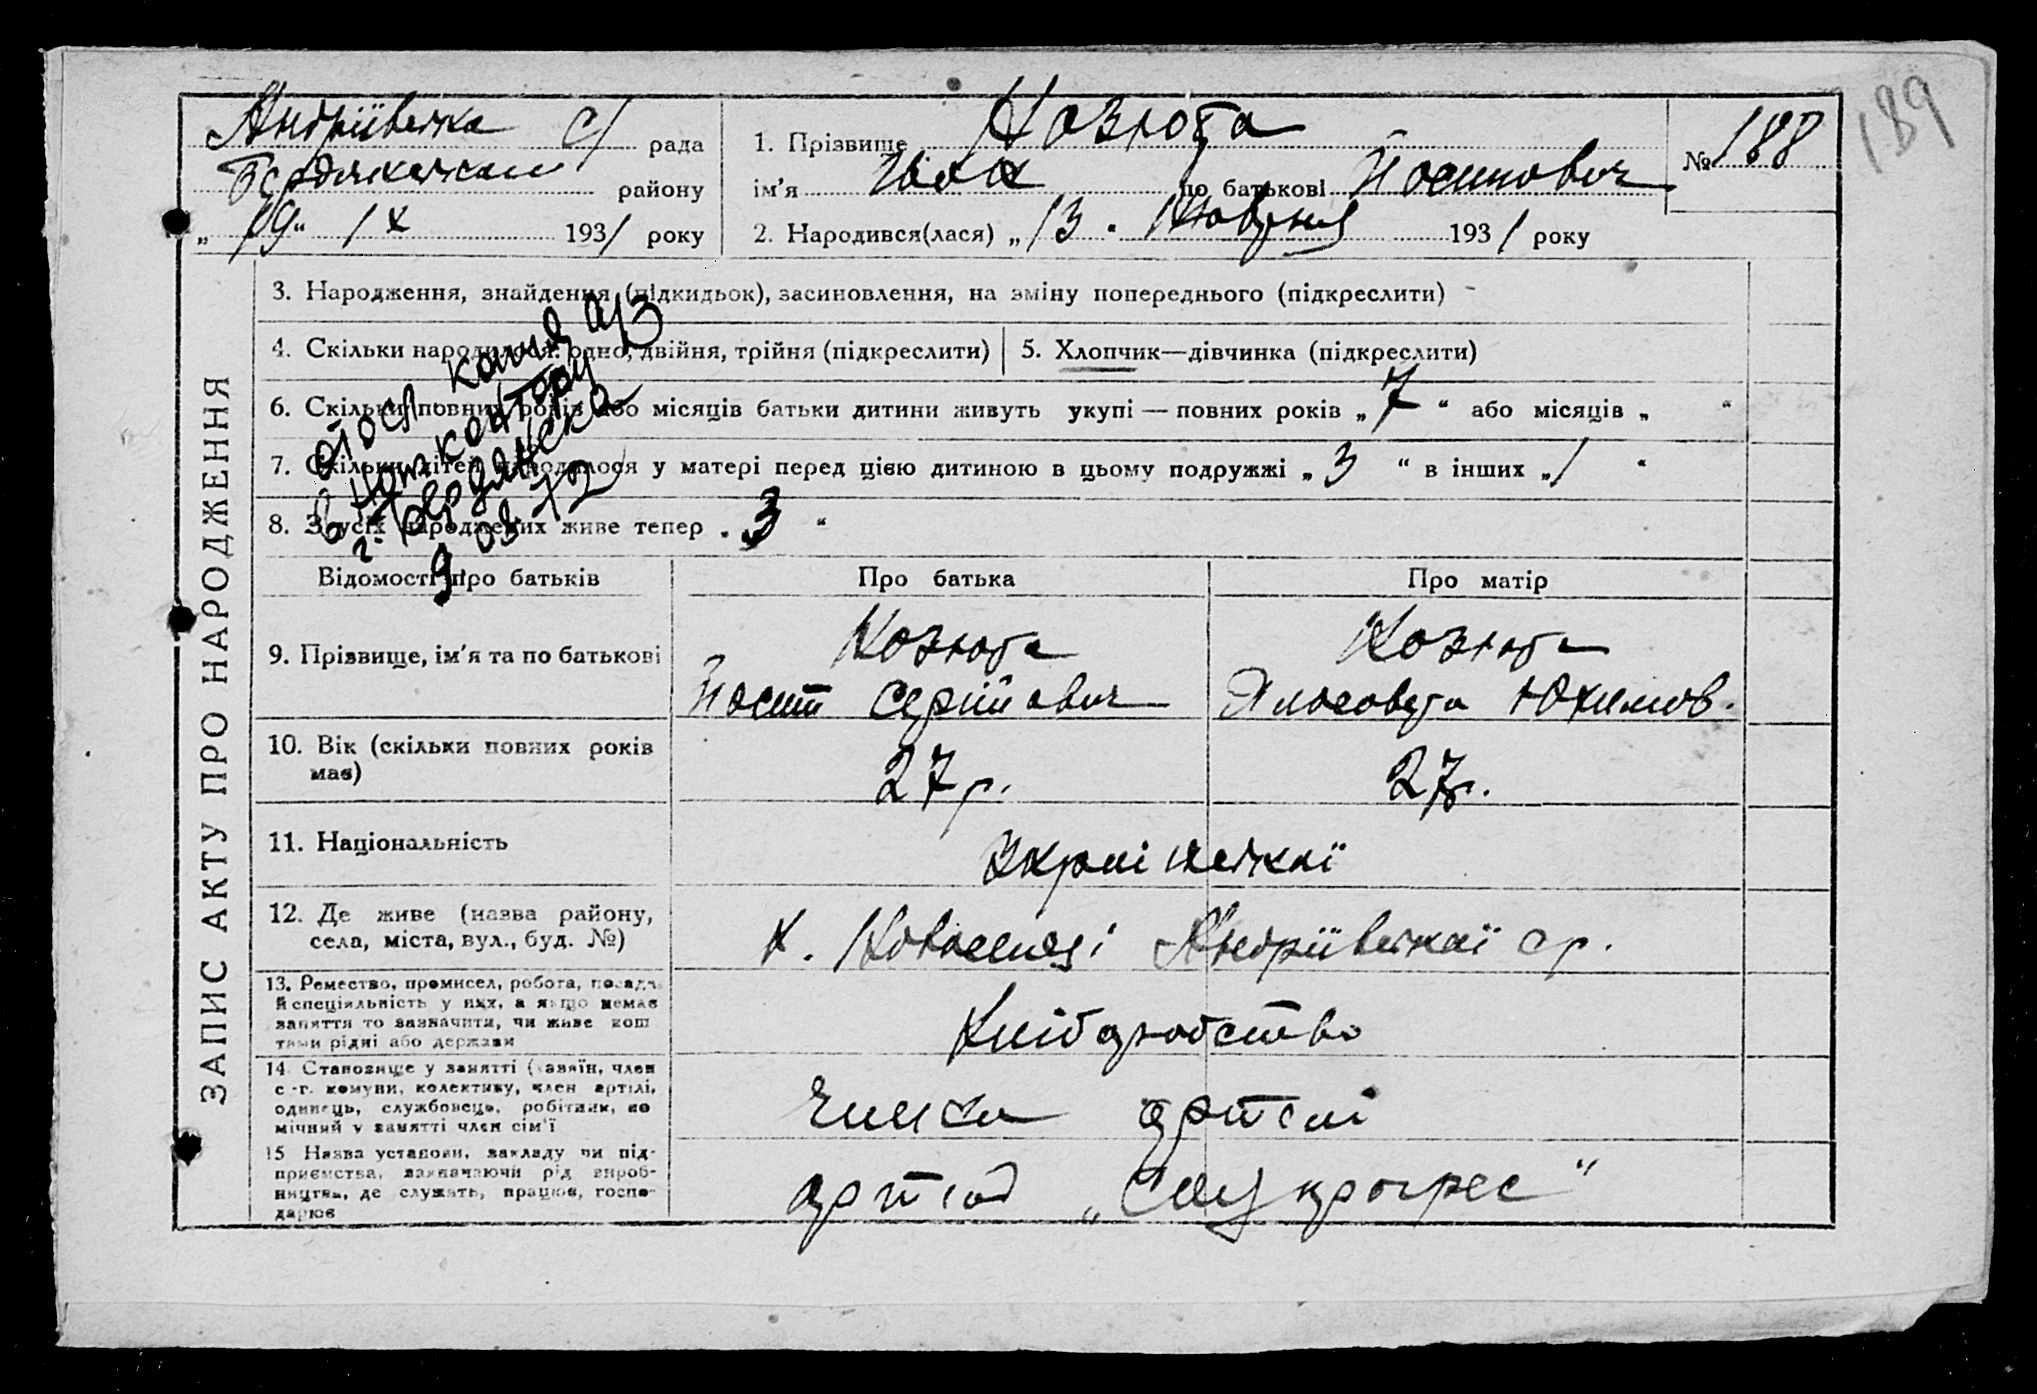 189
Андріївська с/ рада
Бердянський району
„19“ IX 1931 року
1. Прізвище Козюба
ім'я Іван по батькові Йосипович
№ 188
2. Народився(лася) „13. Жовтня 1931 року
ЗАПИС АКТУ ПРО НАРОДЖЕННЯ
3. Народження, знайдення (підкидьок), засиновлення, на зміну попереднього (підкреслити)
4. Скільки народилося: одно, двійня, трійня (підкреслити)
5. Хлопчик—дівчинка (підкреслити)
6. Скільки повних років або місяців батьки дитини живуть укупі — повних років „7“ або місяців „ “
7. Скільки дітей народилося у матері перед цією дитиною в цьому подружжі „3“ в інших „1“
8. З усіх народжених живе тепер „3“
отосл копия а/з
в нот контору
г. Бердянска
9 03 72
Відомості про батьків
Про батька
Про матір
9. Прізвище, ім'я та по батькові
Козюба
Йосип Сергійович
Козюба
Єлисовета Юхимов.
10. Вік (скільки повних років має)
27 р.
27 р.
11. Національність
Української
12. Де живе (назва району,
села, міста, вул., буд. №)
х. Новоселиці Андріївської ср.
13. Ремество, промисел, робота, посада
й спеціяльність у них, а якщо немає
заняття то зазначити, чи живе кош
тами рідні або держави
Хліборобство
14. Становище у занятті (хазяїн, член
с.-г. комуни, колективу, член артілі,
одинець, службовець, робітник, по
мічний у занятті член сім'ї
Члени артелі
15 Назва установи, закладу чи під-
приємства, зазначаючи рід вироб-
ництва, де служать, працює, госпо-
дарює
артіль „ прогрес“